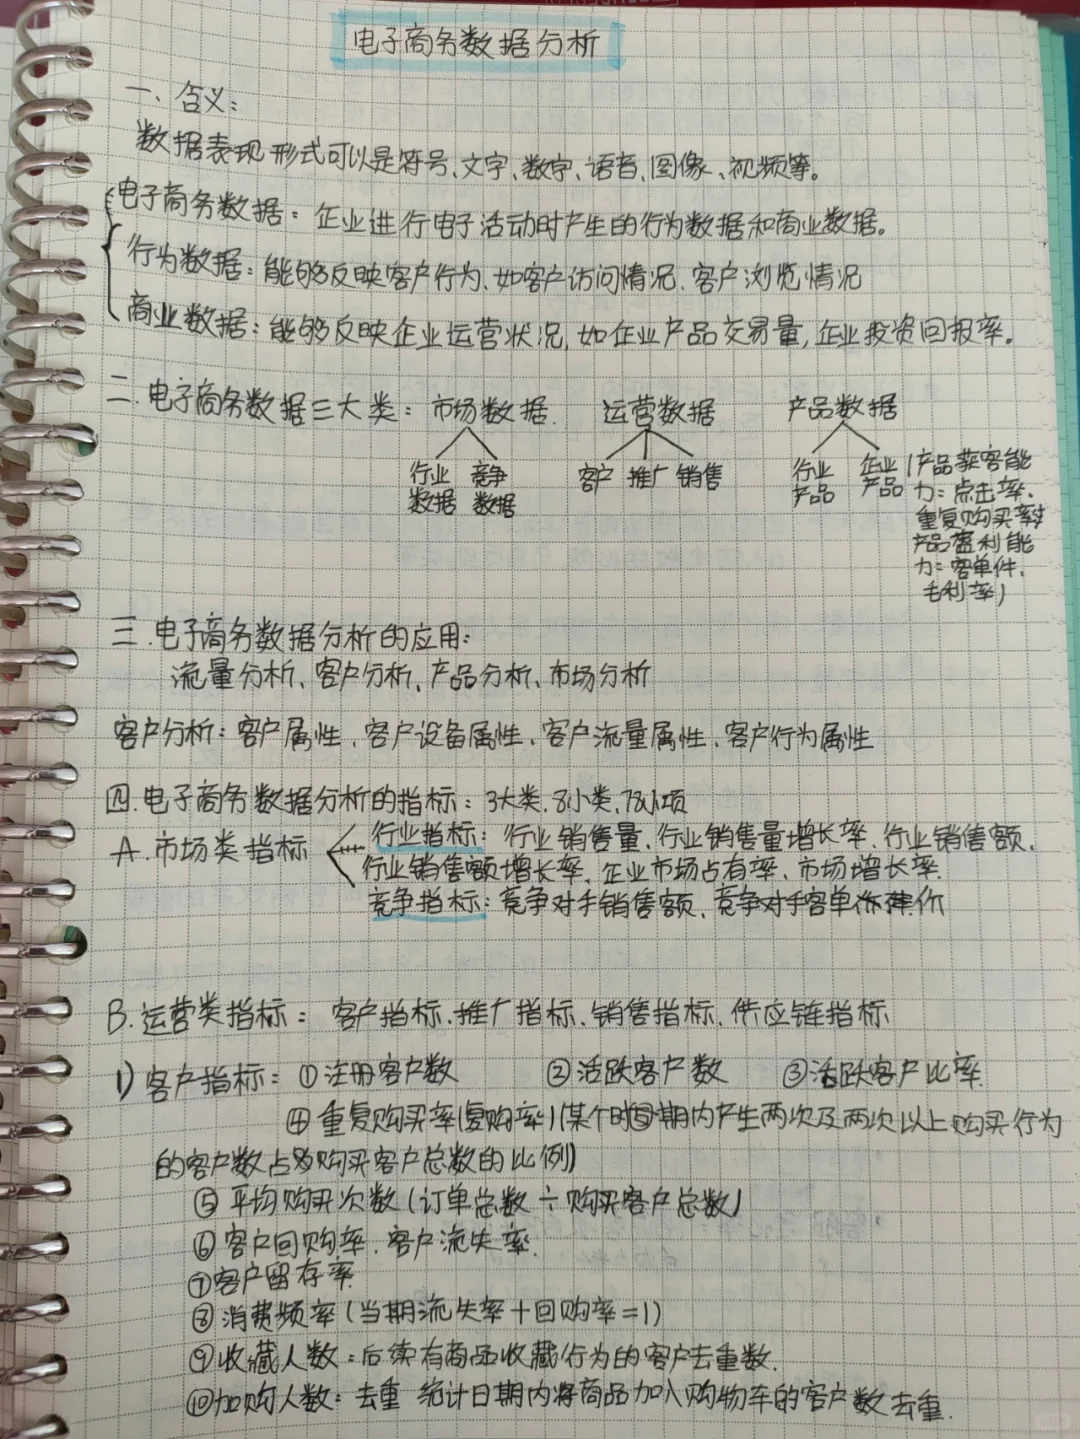 电子商务数据分析
一、含义：
数据表现形式可以是符号、文字、数字、语音、图像、视频等。
电子商务数据：企业进行电子活动时产生的行为数据和商业数据。
行为数据：能够反映客户行为、如客户访问情况、客户浏览情况
商业数据：能够反映企业运营状况，如企业产品交易量，企业投资回报率。
二、电子商务数据三大类：市场数据、运营数据 产品数据
行业数据 竞争数据 客户 推广 销售 行业产品 企业产品
(产品获客能
力：点击率、
重复购买率
产品盈利能
力：客单件、
毛利率)
三、电子商务数据分析的应用：
流量分析、客户分析、产品分析、市场分析
客户分析：客户属性、客户设备属性、客户流量属性、客户行为属性
四、电子商务数据分析的指标：3大类、8小类、78小项
A、市场类指标 行业指标：行业销售量、行业销售量增长率、行业销售额、
行业销售额增长率、企业市场占有率、市场增长率
竞争指标：竞争对手销售额、竞争对手客单价
B、运营类指标：客户指标、推广指标、销售指标、供应链指标
1)客户指标：①注册客户数 ②活跃客户数 ③活跃客户比率
④重复购买率(复购率)(某个时期内产生两次及两次以上购买行为
的客户数占购买客户总数的比例)
⑤平均购买次数(订单总数÷购买客户总数)
⑥客户回购率、客户流失率
⑦客户留存率
⑧消费频率(当期流失率+回购率=1)
⑨收藏人数：后续有商品收藏行为的客户去重数.
⑩加购人数：去重 统计日期内将商品加入购物车的客户数去重.